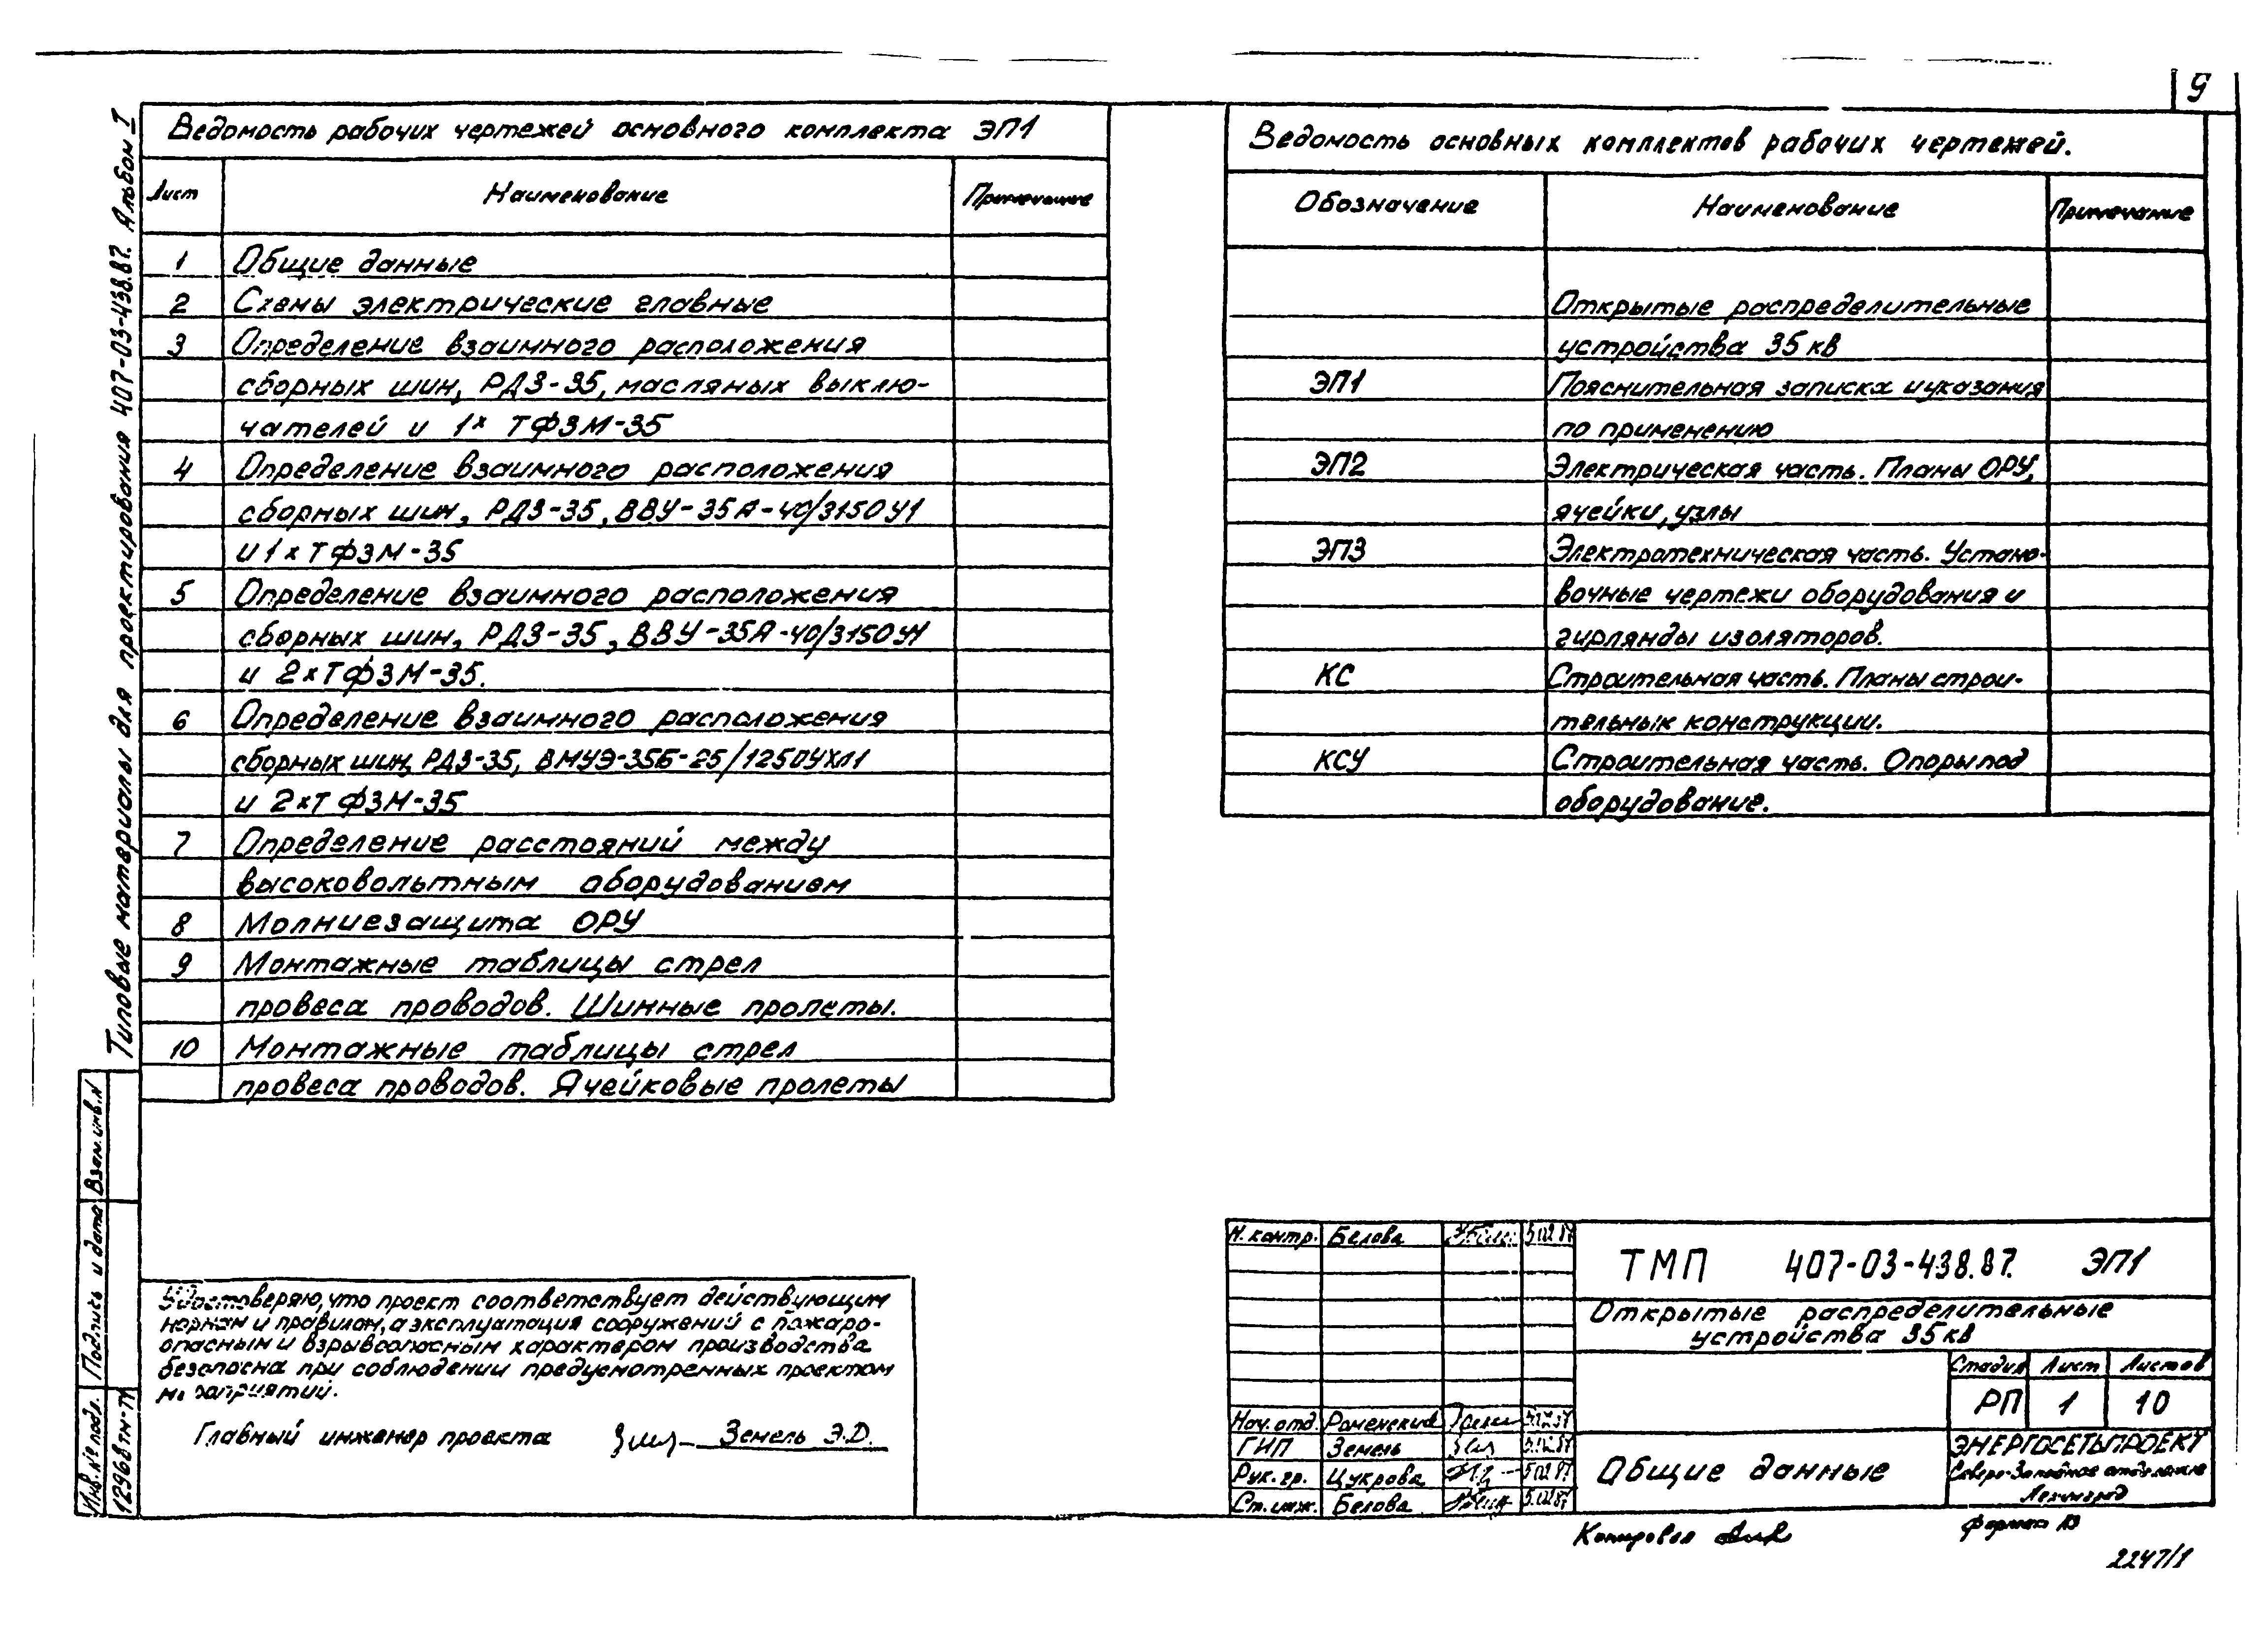 9
Типовые материалы для проектирования 407-03-438.87. Альбом I
Ведомость рабочих чертежей основного комплекта ЭП1
Лист Наименование Примечание
1 Общие данные
2 Схемы электрические главные
3 Определение взаимного расположения
сборных шин, РДЗ-35, масляных выклю-
чателей и 1х ТФЗМ-35
4 Определение взаимного расположения
сборных шин, РДЗ-35, ВВУ-35А-40/3150У1
и 1хТФЗМ-35
5 Определение взаимного расположения
сборных шин, РДЗ-35, ВВУ-35А-40/3150У1
и 2хТФЗМ-35.
6 Определение взаимного расположения
сборных шин, РДЗ-35, ВМУЭ-35Б-25/1250УХЛ1
и 2хТФЗМ-35
7 Определение расстояний между
высоковольтным оборудованием
8 Молниезащита ОРУ
9 Монтажные таблицы стрел
провеса проводов. Шинные пролеты.
10 Монтажные таблицы стрел
провеса проводов. Ячейковые пролеты
Ведомость основных комплектов рабочих чертежей.
Обозначение Наименование Примечание
Открытые распределительные
устройства 35 кв
ЭП1 Пояснительная записка и указания
по применению
ЭП2 Электрическая часть. Планы ОРУ,
ячейки, узлы
ЭП3 Электротехническая часть. Устано-
вочные чертежи оборудования и
гирлянды изоляторов.
КС Строительная часть. Планы строи-
тельных конструкций.
КСУ Строительная часть. Опоры под
оборудование.
Взам. инв. N
Подпись и дата
Инв. № подл.
12968тм-Т1
Удостоверяю, что проект соответствует действующим
нормам и правилам, а эксплуатация сооружений с пожаро-
опасным и взрывоопасным характером производства
безопасна при соблюдении предусмотренных проектом
мероприятий.
Главный инженер проекта Земель Э.Д.
Н. контр. Белова 5.02.87
Нач. отд. Роменский 5.02.87
ГИП Земель 5.02.87
Рук. гр. Цукрова 5.02.87
Ст. инж. Белова 5.02.87
ТМП 407-03-438.87. ЭП1
Открытые распределительные
устройства 35 кв
Стадия Лист Листов
РП 1 10
Общие данные
ЭНЕРГОСЕТЬПРОЕКТ
Северо-Западное отделение
Ленинград
Копировал
Формат А3
2247/1